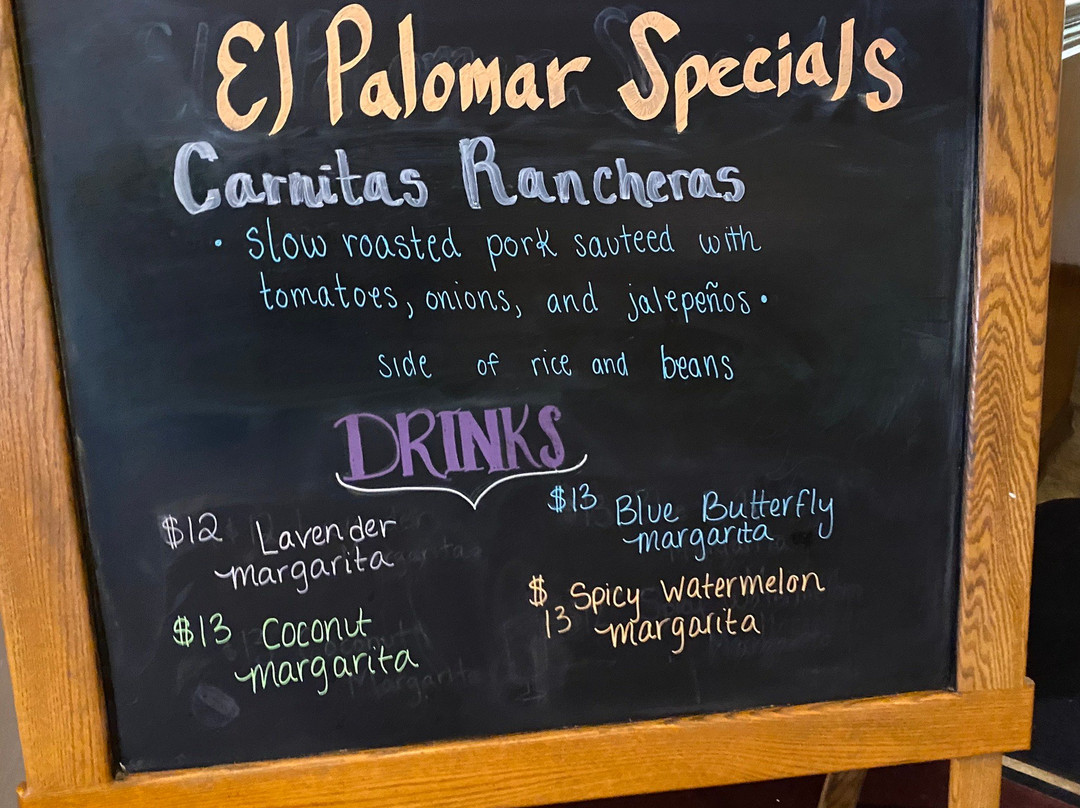 El Palomar Specials
Carnitas Rancheras
• slow roasted pork sauteed with
tomatoes, onions, and jalepeños •
side of rice and beans
DRINKS
$12 Lavender
margarita
$13 Blue Butterfly
margarita
$13 Coconut
margarita
$ Spicy Watermelon
13 margarita